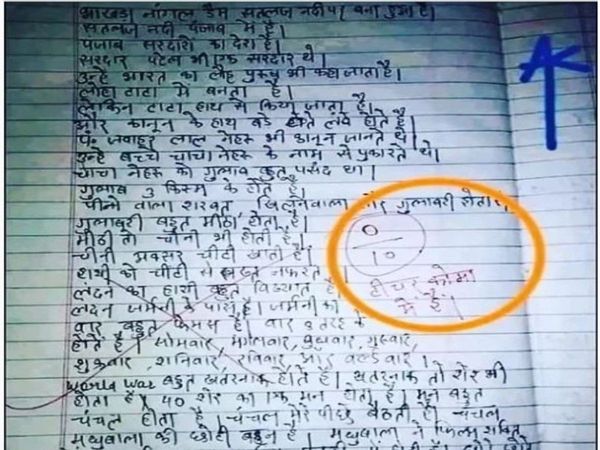 भाखड़ा नांगल डैम सतलज नदी पर बना हुआ है।
सतलज नदी पंजाब में है।
पंजाब सरदारों का देश है।
सरदार पटेल भी एक सरदार थे।
उन्हे भारत का लौह पुरुष भी कहा जाता है।
लोहा टाटा में बनता है।
लेकिन टाटा हाथ से किया जाता है।
और कानून के हाथ बड़े होते लंबे होते है।
पं. जवाहर लाल नेहरू भी कानून जानते थे।
उन्हे बच्चे चाचा नेहरू के नाम से पुकारते थे।
चाचा नेहरू को गुलाब बहुत पसंद था।
गुलाब 3 किस्म के होते है।
पीने वाला शरबत खिलनेवाला और गुलाबरी होता है।
गुलाबरी बहुत मीठा होता है।
मीठी तो चीनी भी होती है।
चीनी अक्सर चींटी खाती है।
हाथी को चींटी से सख्त नफरत है।
लंदन का हाथी बहुत विख्यात है।
लंदन जर्मनी के पास है। जर्मनी का
वार बहुत फेमस है। वार 8 तरह के
होते है। सोमवार, मंगलवार, बुधवार, गुरुवार,
शुक्रवार, शनिवार, रविवार और वर्ल्ड वार।
World war बहुत खतरनाक होते है। खतरनाक तो शेर भी
होता है। 40 शेर का एक मन होता है। मन बहुत
चंचल होता है। चंचल मेरे पीछे बैठती है। चंचल
मधुबाला की छोटी बहन है। मधुबाला ने फिल्म शक्ति
0
10
टीचर कोमा
में है।
AK